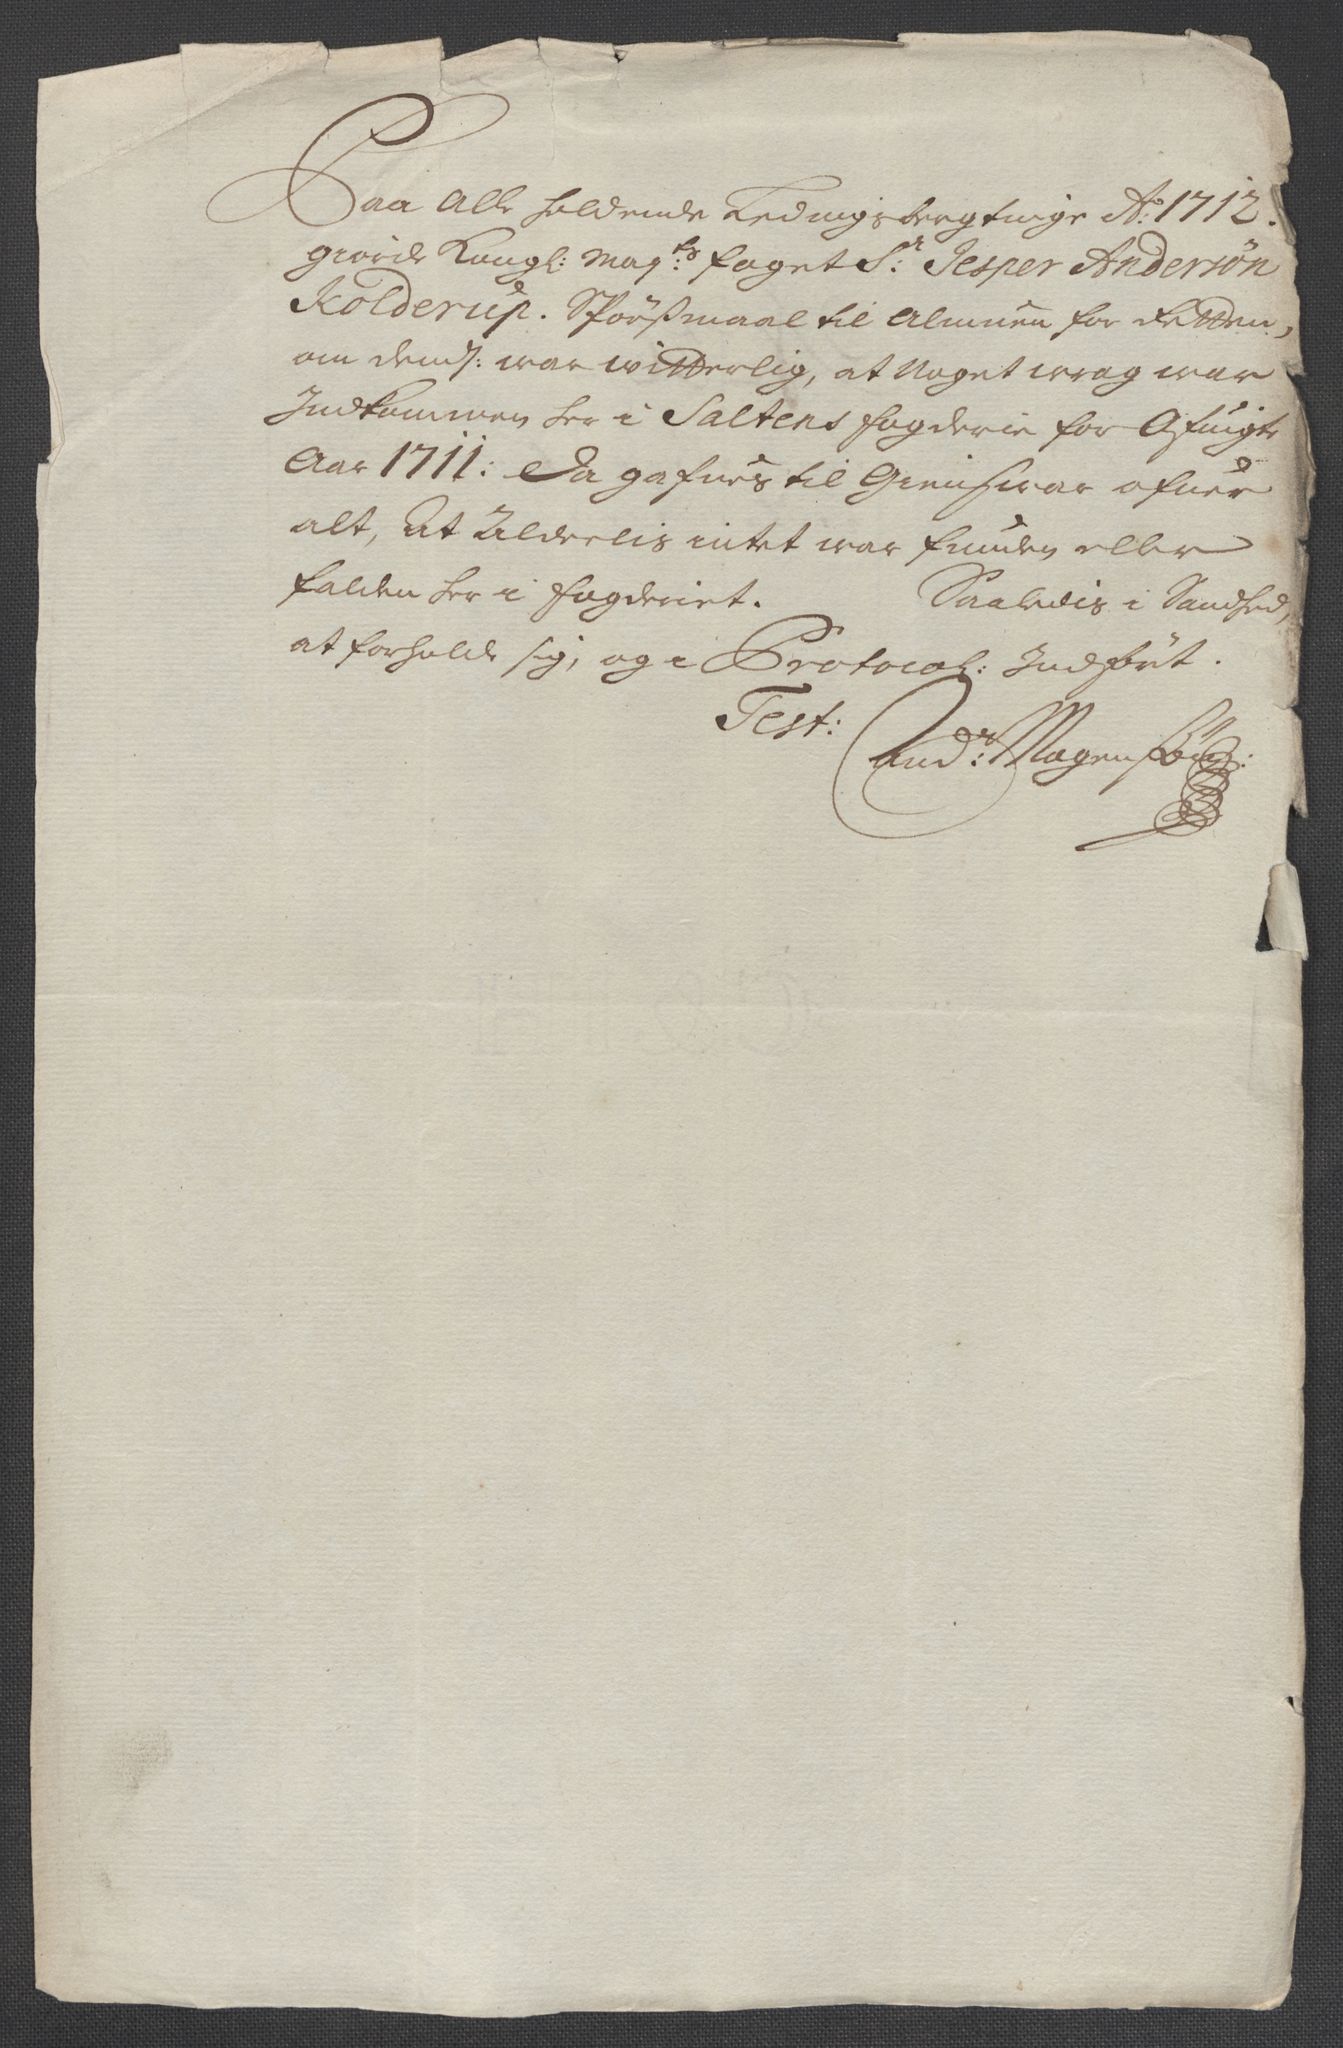 Paa Alle holdende Ledingsbergtinge A:o 1712.
giorde Kongl: May:ts foget S:r Jesper Andersön
Kolderup. Spörßmaal til Almuen for Retten,
om dem var witterlig, at Noget wrag war
Indkommen her i Saltens fogderie for Afvigte
Aar 1711: Da gafves til Giensvar ofver
alt, At Aldeelis intet var funden eller
falden her i fogderiet. Saaledis i Sandhed,
at forholde sig, og i Protocol: Indfört.
Test:
And: Mogensön: